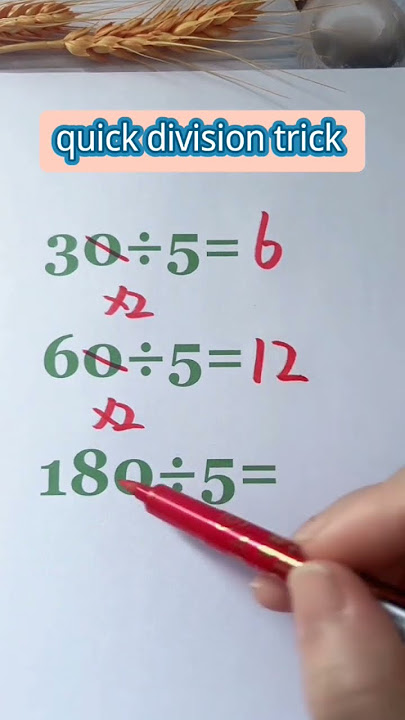 quick division trick
30÷5=6
×2
60÷5=12
×2
180÷5=